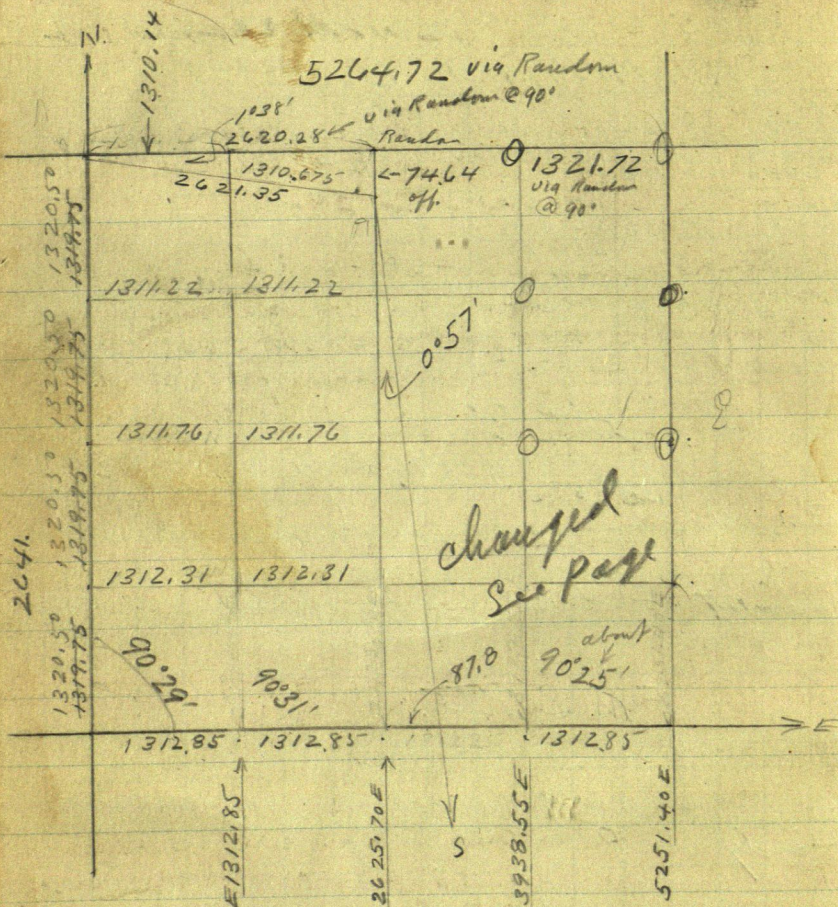 N
1310.14
5264.72 via Random
1°38'
via Random @ 90°
2620.28
Random
1310.675
2621.35
74.64
off.
1321.72
via Random
@ 90°
1320.50
1319.75
1311.22 1311.22
0°57'
1320.50
1319.75
1311.76 1311.76
1320.50
1319.75
2641.
changed
See page
1312.31 1312.31
1320.50
1319.75
90°29'
90°31'
87.8
about
90°25'
E
1312.85 1312.85 1312.85
E1312.85
2625.70E
3938.55E
5251.40E
S